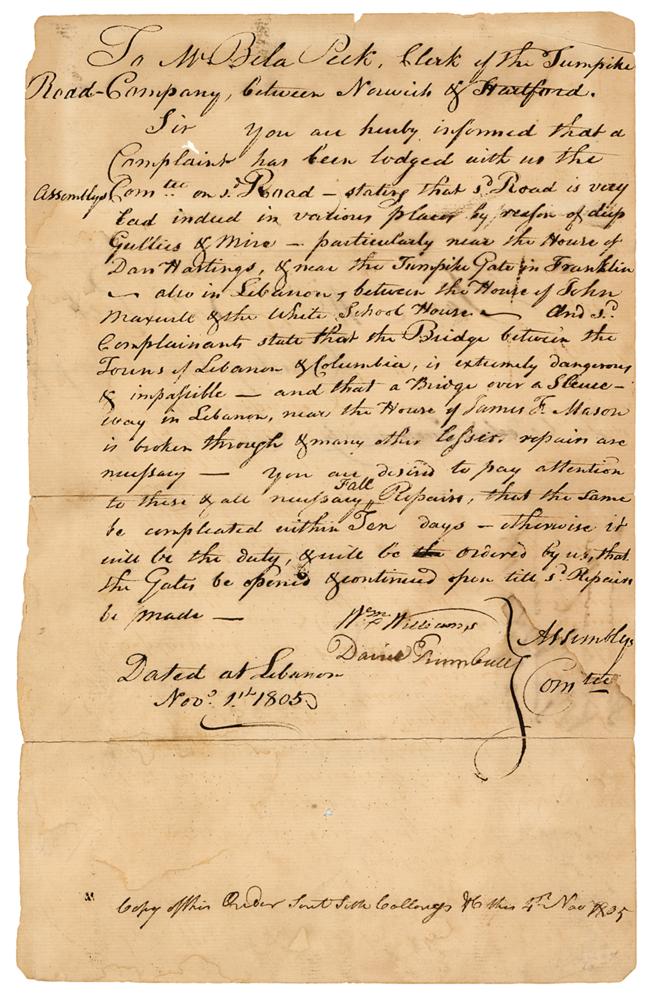 To Mr Bela Peck, Clerk of the Turnpike
Road-Company, between Norwich & Hartford.
Sir You are hereby informed that a
Complaint has been lodged with us the
Assemblys Comtee on sd. Road – stating that sd. Road is very
bad indeed in various places by reason of deep
Gullies & Mire – particularly near the House of
Dan Hartings, & near the Turnpike Gate in Franklin
– also in Lebanon, between the House of John
Maxwell & the White School House – And sd.
Complainants state that the Bridge between the
Towns of Lebanon & Columbia, is extremely dangerous
& impassible – and that a Bridge over a Sluce-
way in Lebanon, near the House of James F. Mason
is broken through & many other lesser repairs are
necessary – You are desired to pay attention
to these & all necessary Fall Repairs, that the same
be compleated within Ten days – otherwise it
will be the duty, & will be the ordered by us, that
the Gates be opened & continued open till sd. Repairs
be made –
Wm Williams
David Trumbull
Assemblys
Comtee
Dated at Lebanon
Novr. 1st 1805
Copy of this Order Sent Seth &c this 4th Nov 1805